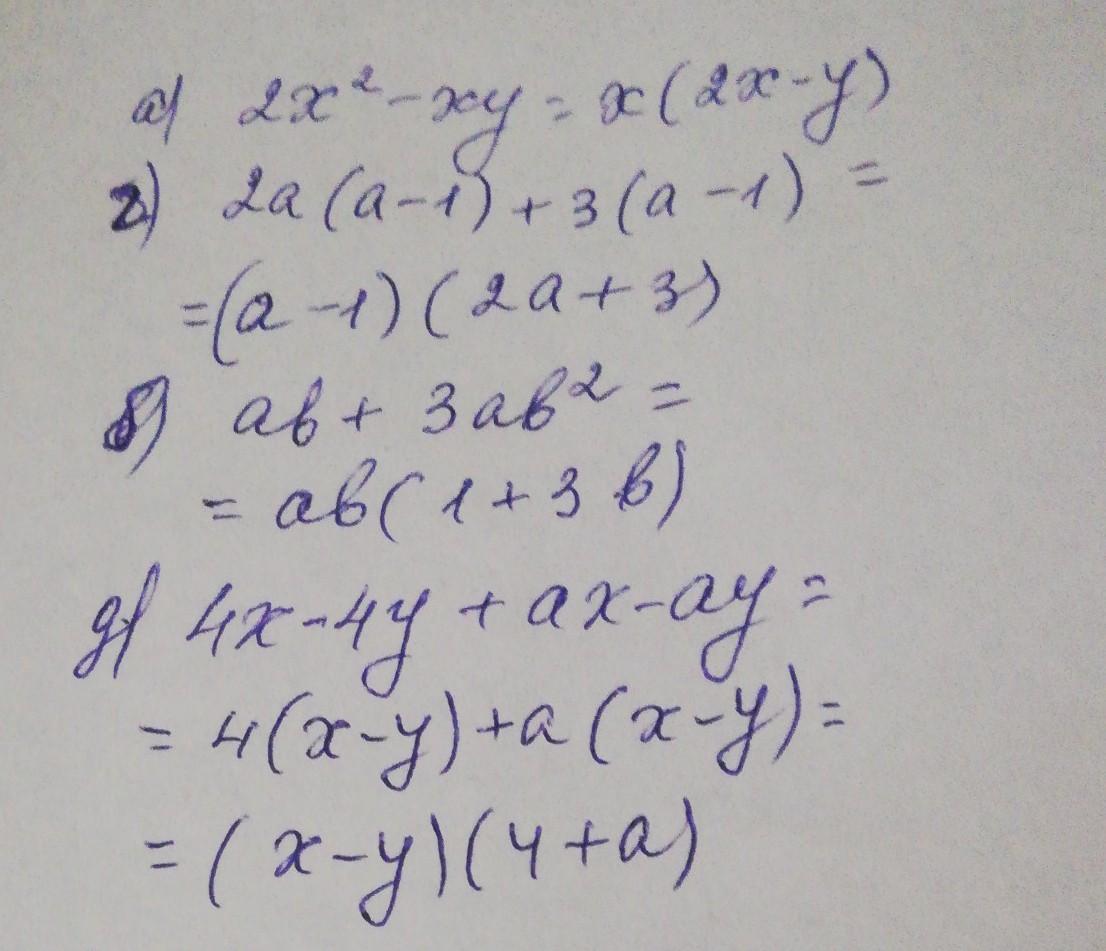 а) 2x² - xy = x(2x-y)
г) 2a(a-1) + 3(a-1) =
=(a-1)(2a+3)
б) ab + 3ab² =
= ab(1+3b)
д) 4x-4y + ax-ay =
= 4(x-y)+a(x-y)=
= (x-y)(4+a)